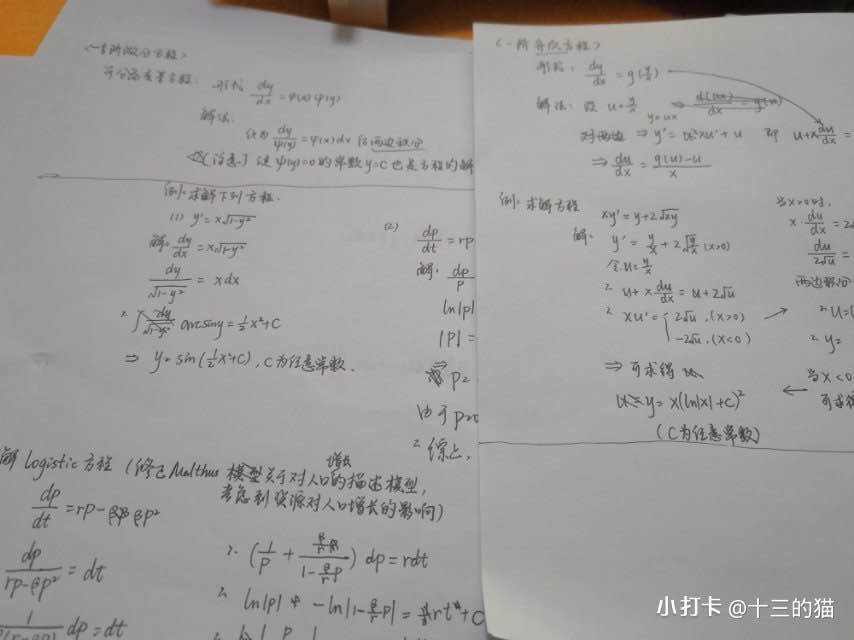 <一阶微分方程>
可分离变量方程: 形式 dy/dx = φ(x)ψ(y)
解法:
化为 dy/ψ(y) = φ(x)dx 后两边积分
(注意) 使ψ(y)=0的常数y=C也是方程的解
例: 求解下列方程.
(1) y' = x√(1-y²)
解: dy/dx = x√(1-y²)
dy/√(1-y²) = xdx
arcsiny = ½x²+C
⇒ y = sin(½x²+C), C为任意常数.
(2) dp/dt = rp
解: dp/p
ln|p|
|p| =
⇒ p=
由于p=0
∴ 综上,
解 logistic 方程 (修正Malthus 模型关于对人口增长的描述模型,
考虑到资源对人口增长的影响)
dp/dt = rp - βp²
dp/(rp-βp²) = dt
dp = dt
∴ (1/p + (β/r)/(1-(β/r)p)) dp = rdt
∴ ln|p| - ln|1-(β/r)p| = rt + C
<一阶齐次方程>
形式: dy/dx = g(y/x)
解法: 设 u = y/x
y=ux
对两边 ⇒ y' = xu' + u 即 u+x du/dx =
⇒ du/dx = (g(u)-u)/x
例: 求解方程
xy' = y+2√(xy)
解: y' = y/x + 2√(y/x) (x>0)
令u=y/x
∴ u + x du/dx = u+2√u
∴ xu' = { 2√u, (x>0)
-2√u, (x<0)
⇒ 可求得
y= x(ln|x|+C)²
(C为任意常数)
当x>0时,
x·du/dx = 2
du/2√u =
两边积分
∴ u=(
∴ y=
当x<0
可求得
小打卡 @十三的猫